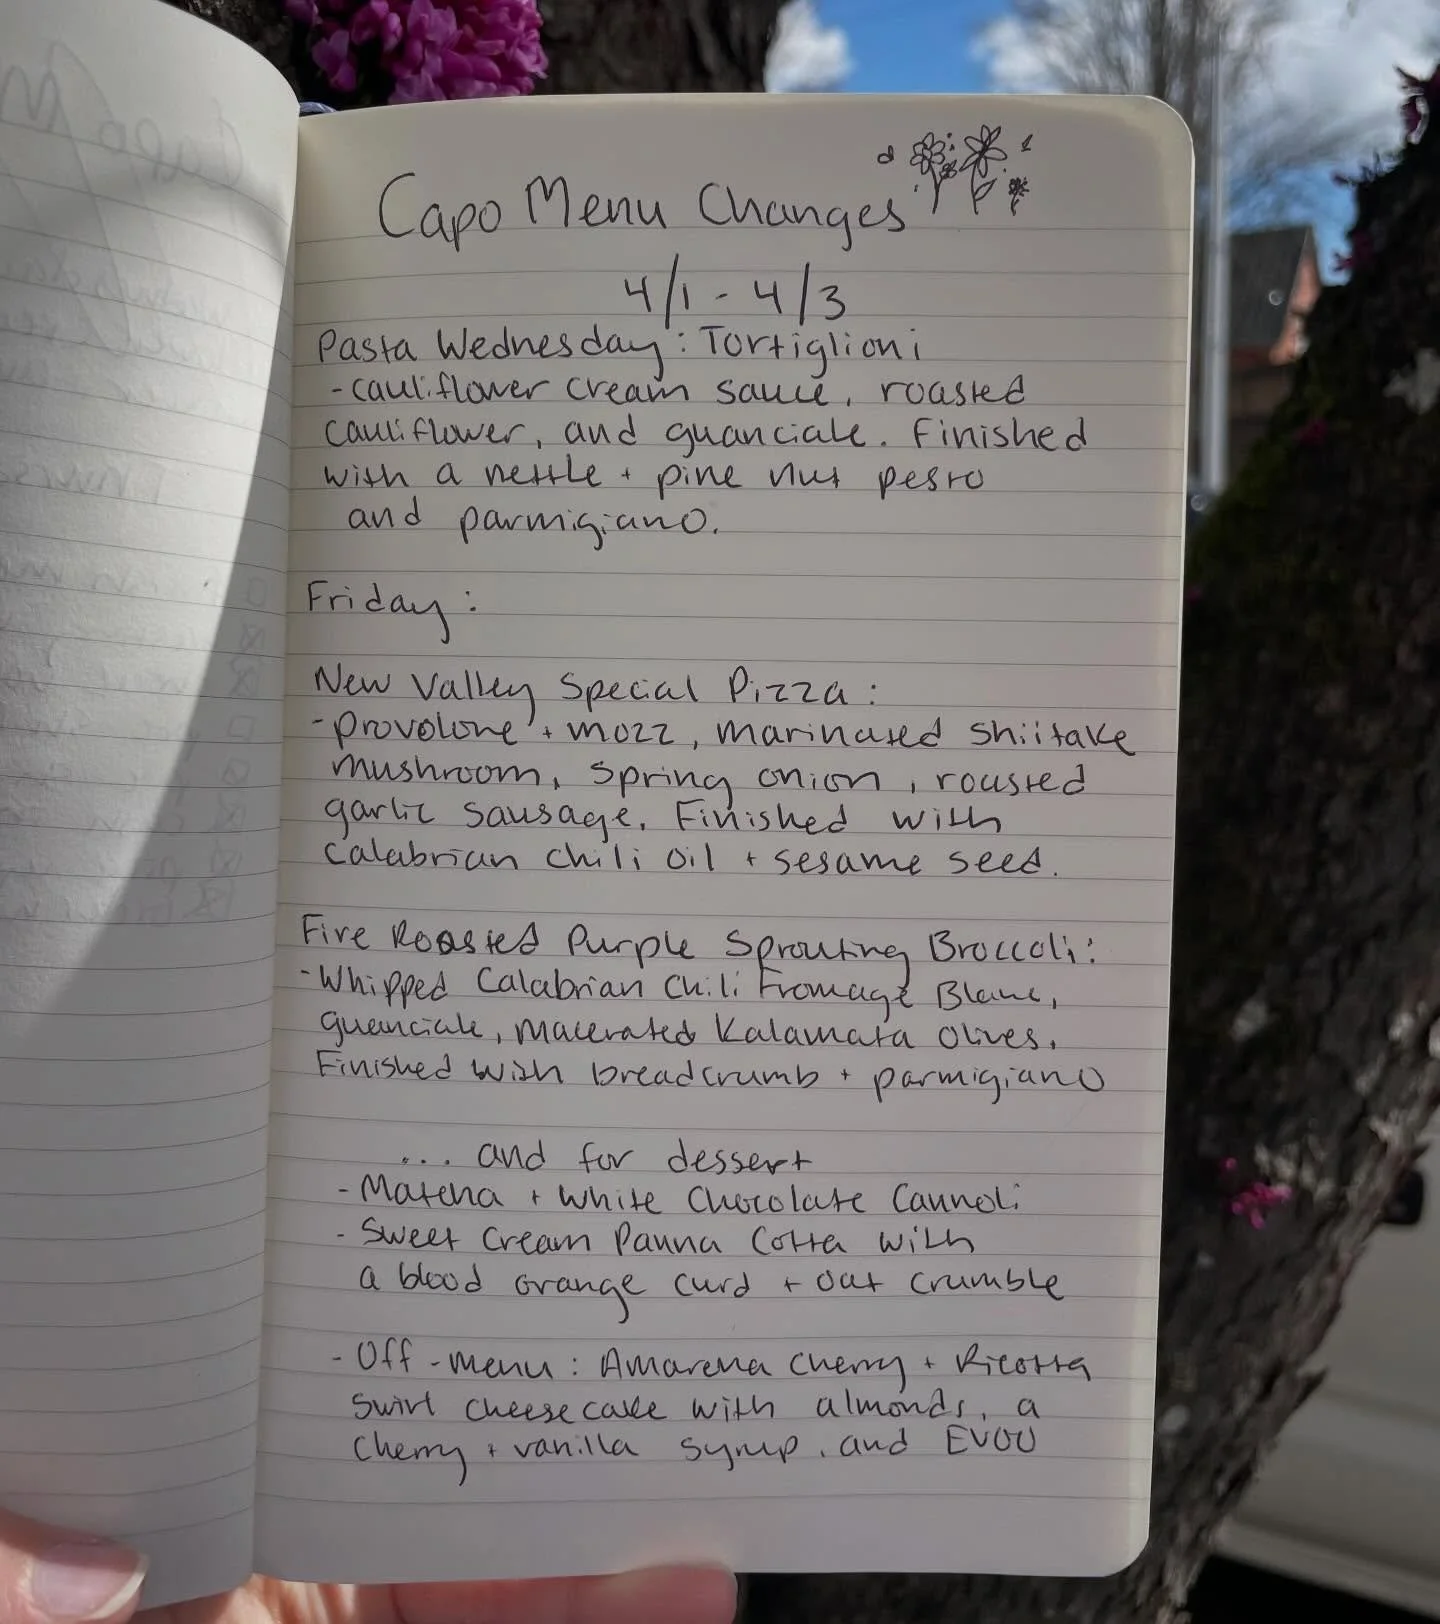 Capo Menu Changes
4/1 - 4/3
Pasta Wednesday: Tortiglioni
- cauliflower cream sauce, roasted
cauliflower, and guanciale. Finished
with a nettle + pine nut pesto
and parmigiano.
Friday:
New Valley Special Pizza:
- provolone + mozz, marinated shiitake
mushroom, spring onion, roasted
garlic sausage. Finished with
calabrian chili oil + sesame seed.
Fire Roasted Purple Sprouting Broccoli:
- Whipped Calabrian Chili Fromage Blanc,
guanciale, Macerated Kalamata Olives.
Finished with breadcrumb + parmigiano
... and for dessert
- Matcha + White Chocolate Cannoli
- Sweet Cream Panna Cotta with
a blood orange curd + oat crumble
- Off-menu: Amarena cherry + Ricotta
swirl cheesecake with almonds, a
cherry + vanilla syrup, and EVOO